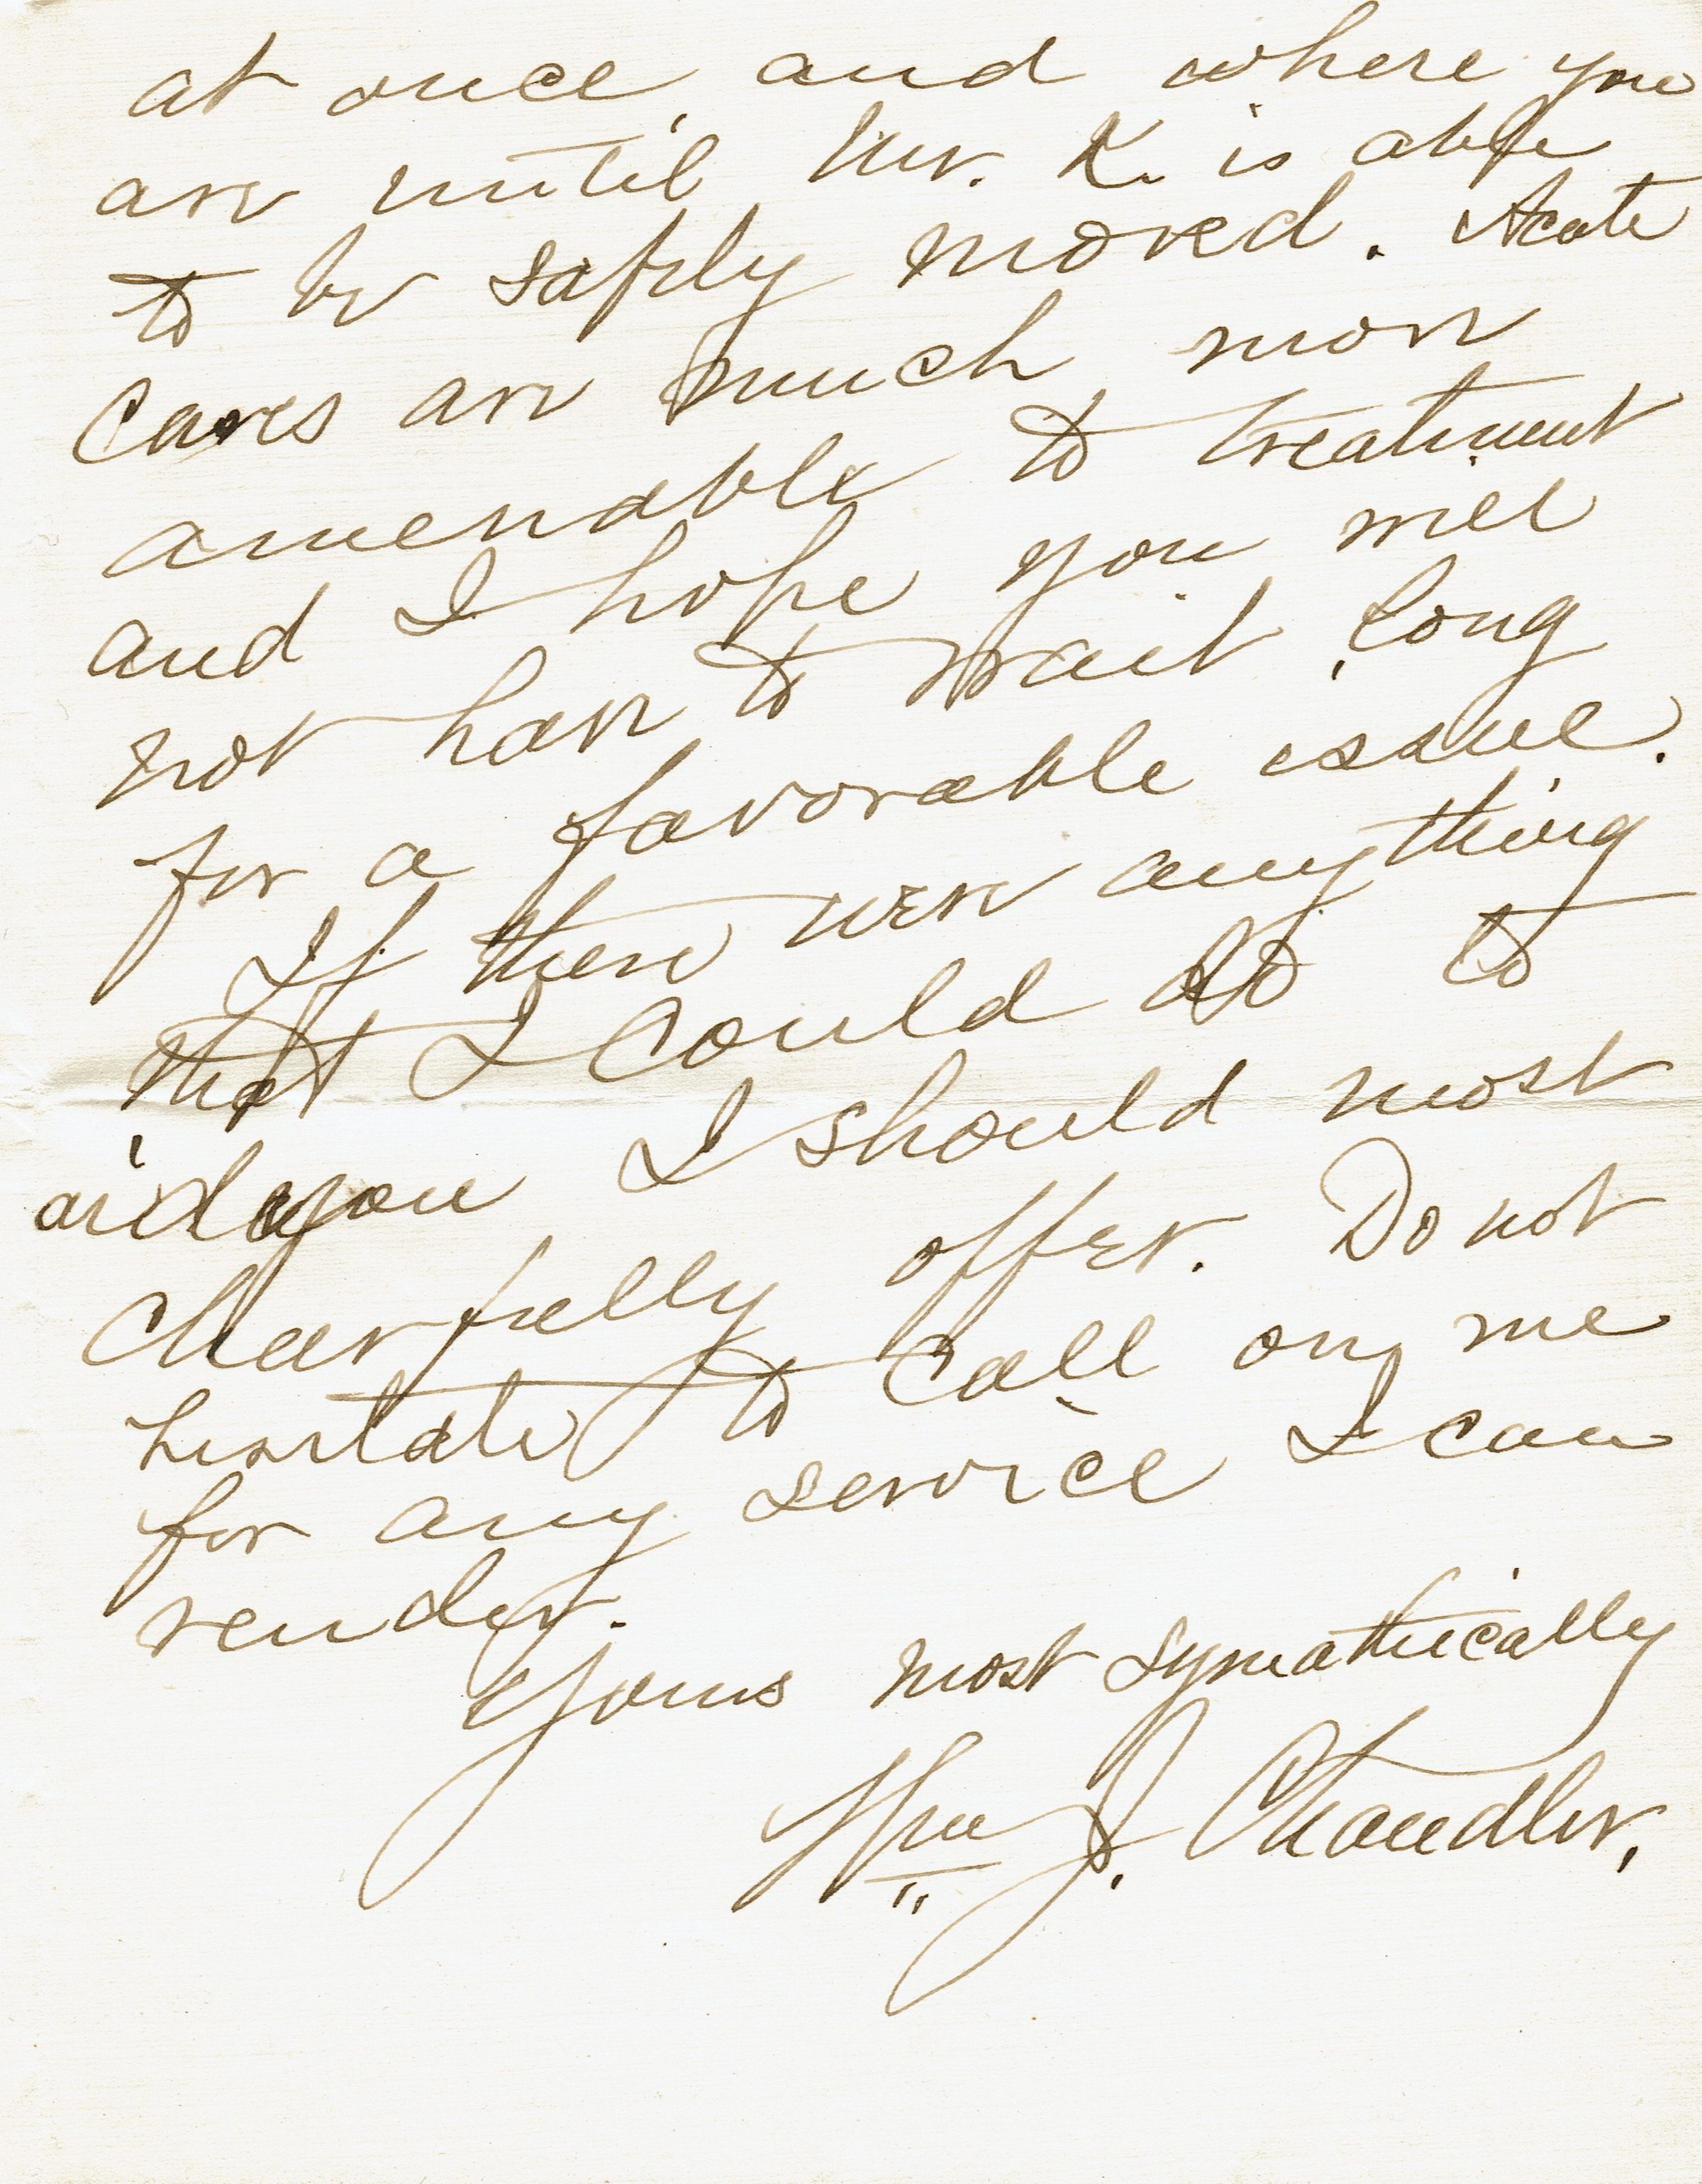 at once, and where you
are until Mr. K. is able
to be safely moved. Acute
cases are much more
amenable to treatment
and I hope you will
not have to wait long
for a favorable issue.
If there were anything
that I could do to
aid you I should most
cheerfully offer. Do not
hesitate to call on me
for any service I can
render.
Yours most symathically
Wm J. Chandler,